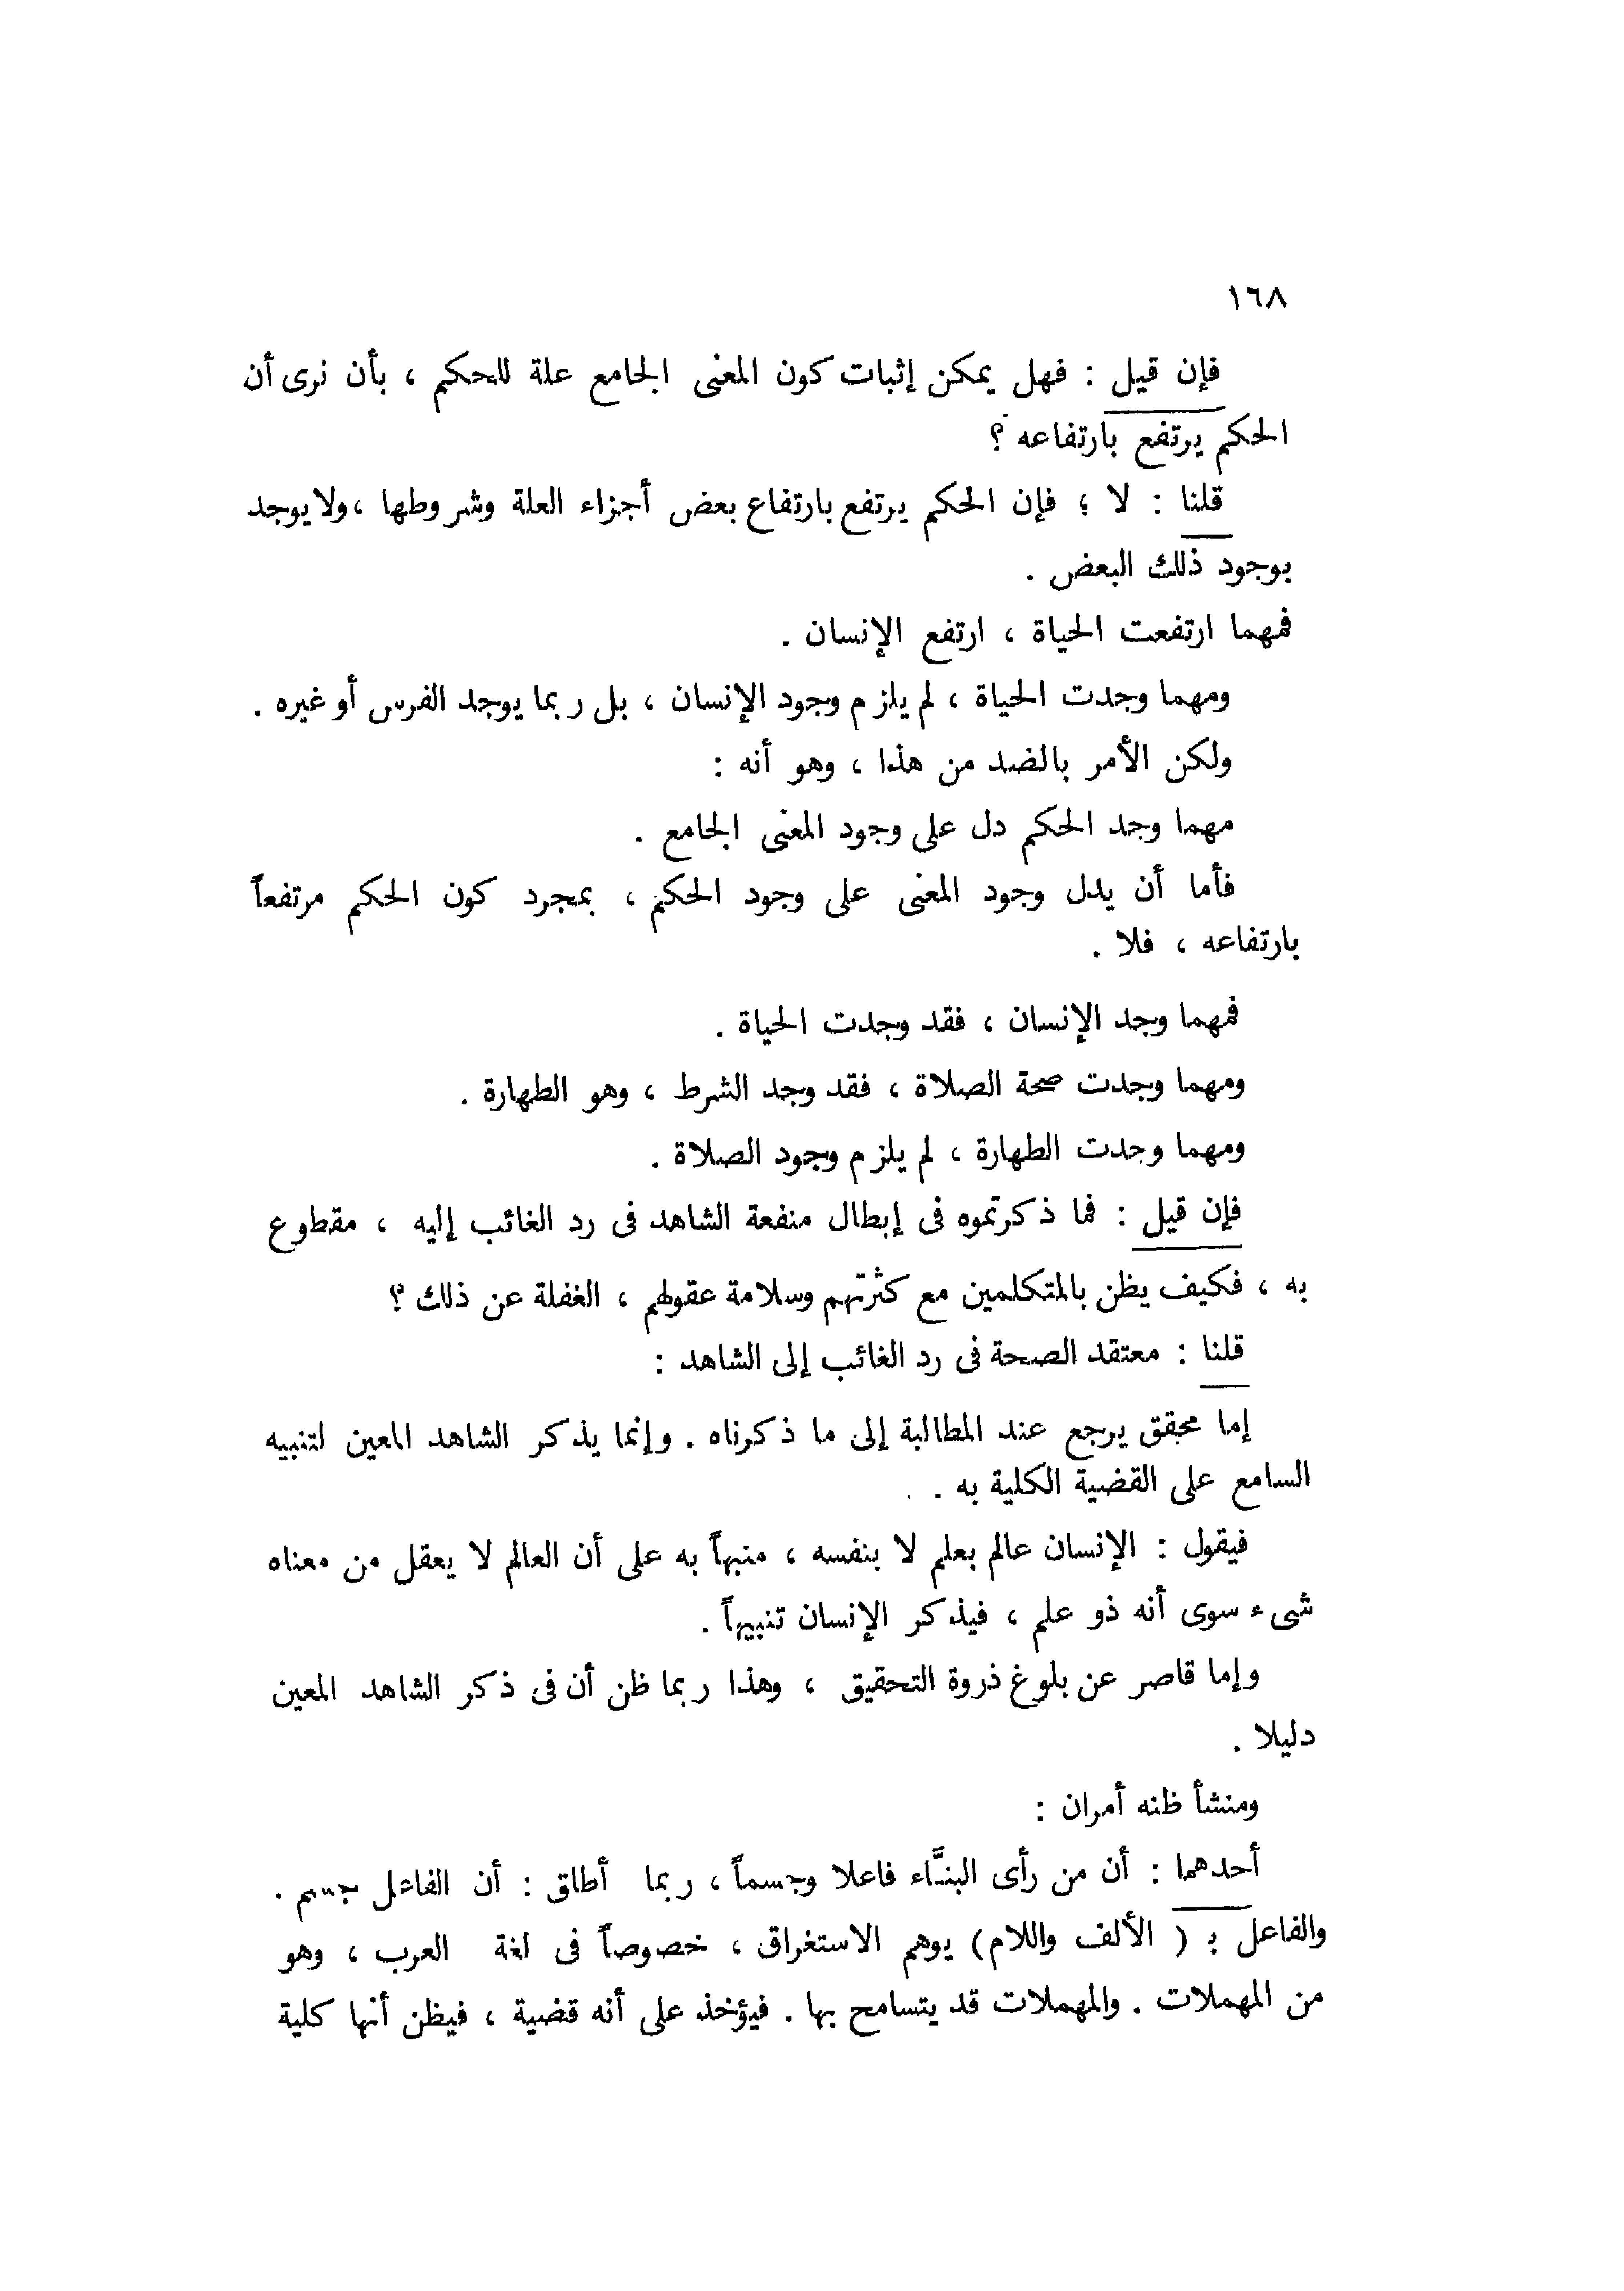 ١٦٨
فإن قيل : فهل يمكن إثبات كون المعنى الجامع علة للحكم ، بأن نرى أن
الحكم يرتفع بارتفاعه ؟
قلنا : لا ؛ فإن الحكم يرتفع بارتفاع بعض أجزاء العلة وشروطها ، ولا يوجد
بوجود ذلك البعض .
فمهما ارتفعت الحياة ، ارتفع الإنسان .
ومهما وجدت الحياة ، لم يلزم وجود الإنسان ، بل ربما يوجد الفرس أو غيره .
ولكن الأمر بالضد من هذا ، وهو أنه :
مهما وجد الحكم دل على وجود المعنى الجامع .
فأما أن يدل وجود المعنى على وجود الحكم ، بمجرد كون الحكم مرتفعاً
بارتفاعه ، فلا .
فمهما وجد الإنسان ، فقد وجدت الحياة .
ومهما وجدت صحة الصلاة ، فقد وجد الشرط ، وهو الطهارة .
ومهما وجدت الطهارة ، لم يلزم وجود الصلاة .
فإن قيل : فما ذكرتموه فى إبطال منفعة الشاهد فى رد الغائب إليه ، مقطوع
به ، فكيف يظن بالمتكلمين مع كثرتهم وسلامة عقولهم ، الغفلة عن ذلك ؟
قلنا : معتقد الصحة فى رد الغائب إلى الشاهد :
إما محقق يرجع عند المطالبة إلى ما ذكرناه . وإنما يذكر الشاهد المعين لتنبيه
السامع على القضية الكلية به .
فيقول : الإنسان عالم بعلم لا بنفسه ، منبهاً به على أن العالم لا يعقل من معناه
شىء سوى أنه ذو علم ، فيذكر الإنسان تنبيهاً .
وإما قاصر عن بلوغ ذروة التحقيق ، وهذا ربما ظن أن فى ذكر الشاهد المعين
دليلا .
ومنشأ ظنه أمران :
أحدهما : أن من رأى البنـَّاء فاعلا وجسماً ، ربما أطلق : أن الفاعل جسم .
والفاعل بـ ( الألف واللام ) يوهم الاستغراق ، خصوصاً فى لغة العرب ، وهو
من المهملات . والمهملات قد يتسامح بها . فيؤخذ على أنه قضية ، فيظن أنها كلية